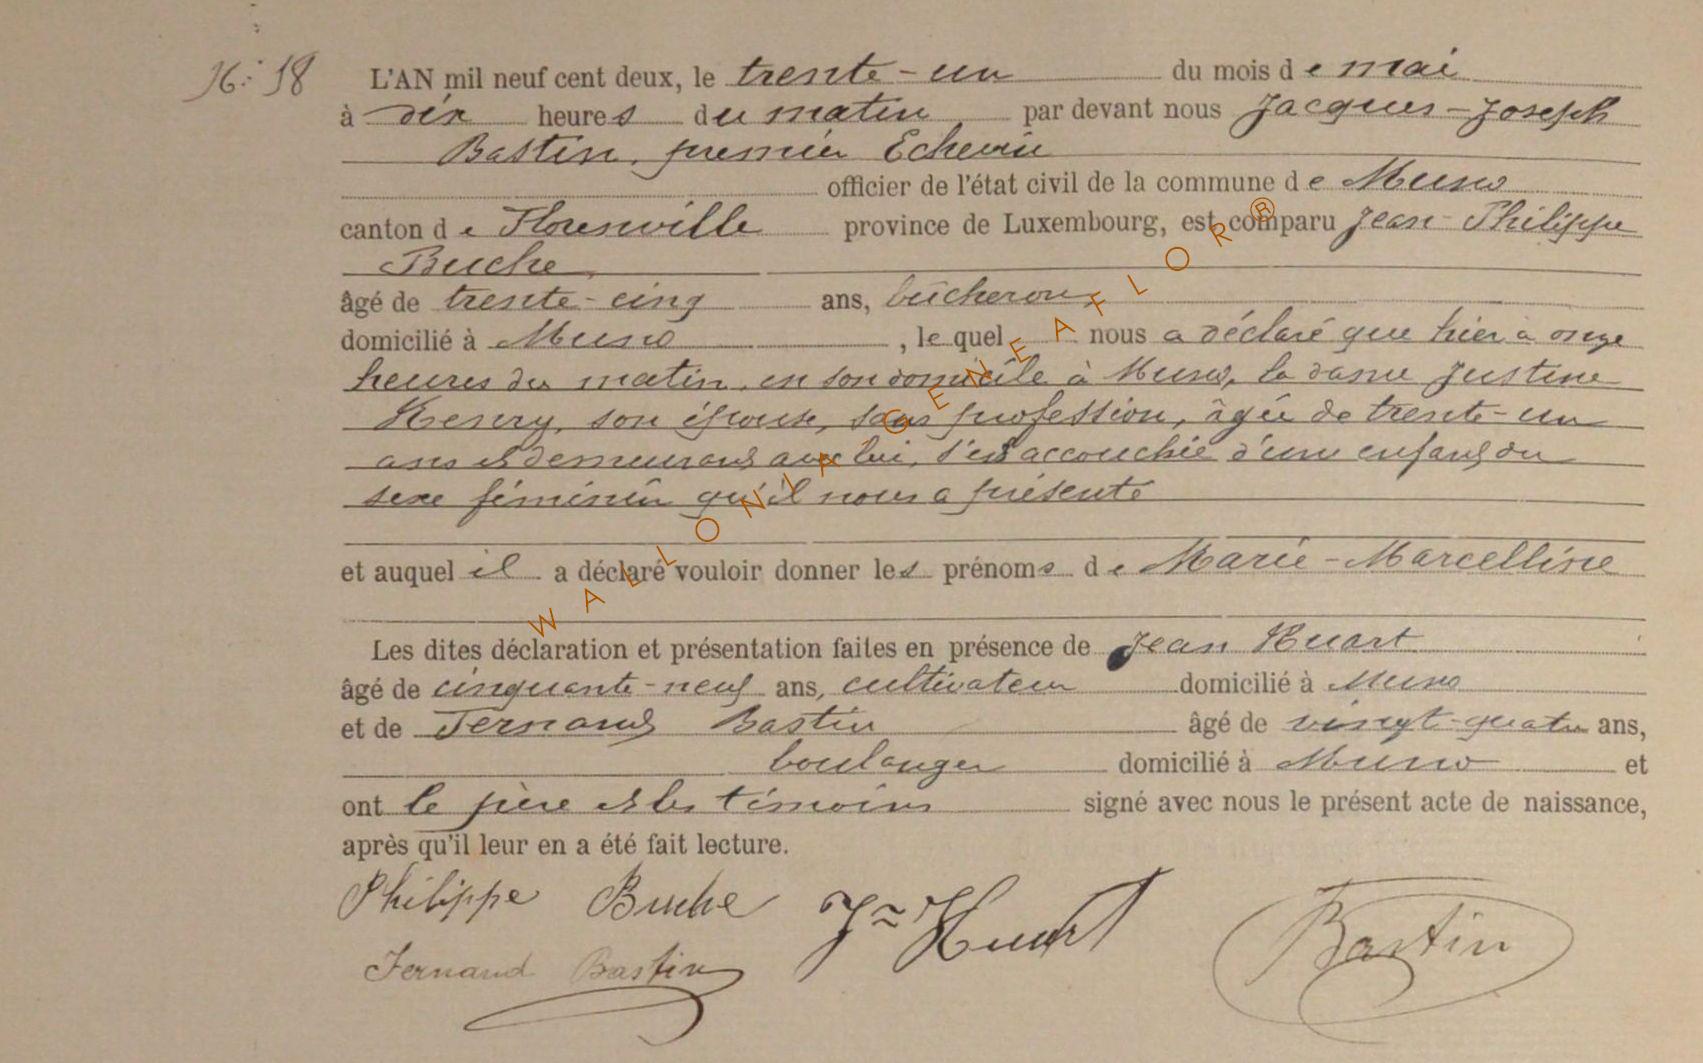 16: 18
L'AN mil neuf cent deux, le trente-un du mois de mai
à dix heures du matin par devant nous Jacques-Joseph
Bastin, premier Echevin
officier de l'état civil de la commune de Muno
canton de Florenville province de Luxembourg, est comparu Jean-Philippe
Buche,
âgé de trente-cinq ans, bûcheron,
domicilié à Muno, lequel nous a déclaré que hier à onze
heures du matin, en son domicile à Muno, la dame Justine
Henry, son épouse, sans profession, âgée de trente-un
ans et demeurant avec lui, s'est accouchée d'un enfant du
sexe féminin qu'il nous a présenté
et auquel il a déclaré vouloir donner les prénoms de Marie-Marcelline
Les dites déclaration et présentation faites en présence de Jean Huart
âgé de cinquante-neuf ans, cultivateur domicilié à Muno
et de Fernand Bastin âgé de vingt-quatre ans,
boulanger domicilié à Muno et
ont le père et les témoins signé avec nous le présent acte de naissance,
après qu'il leur en a été fait lecture.
Philippe Buche Jn Huart Bastin
Fernand Bastin
WALLONIA GENEAFLOR ®